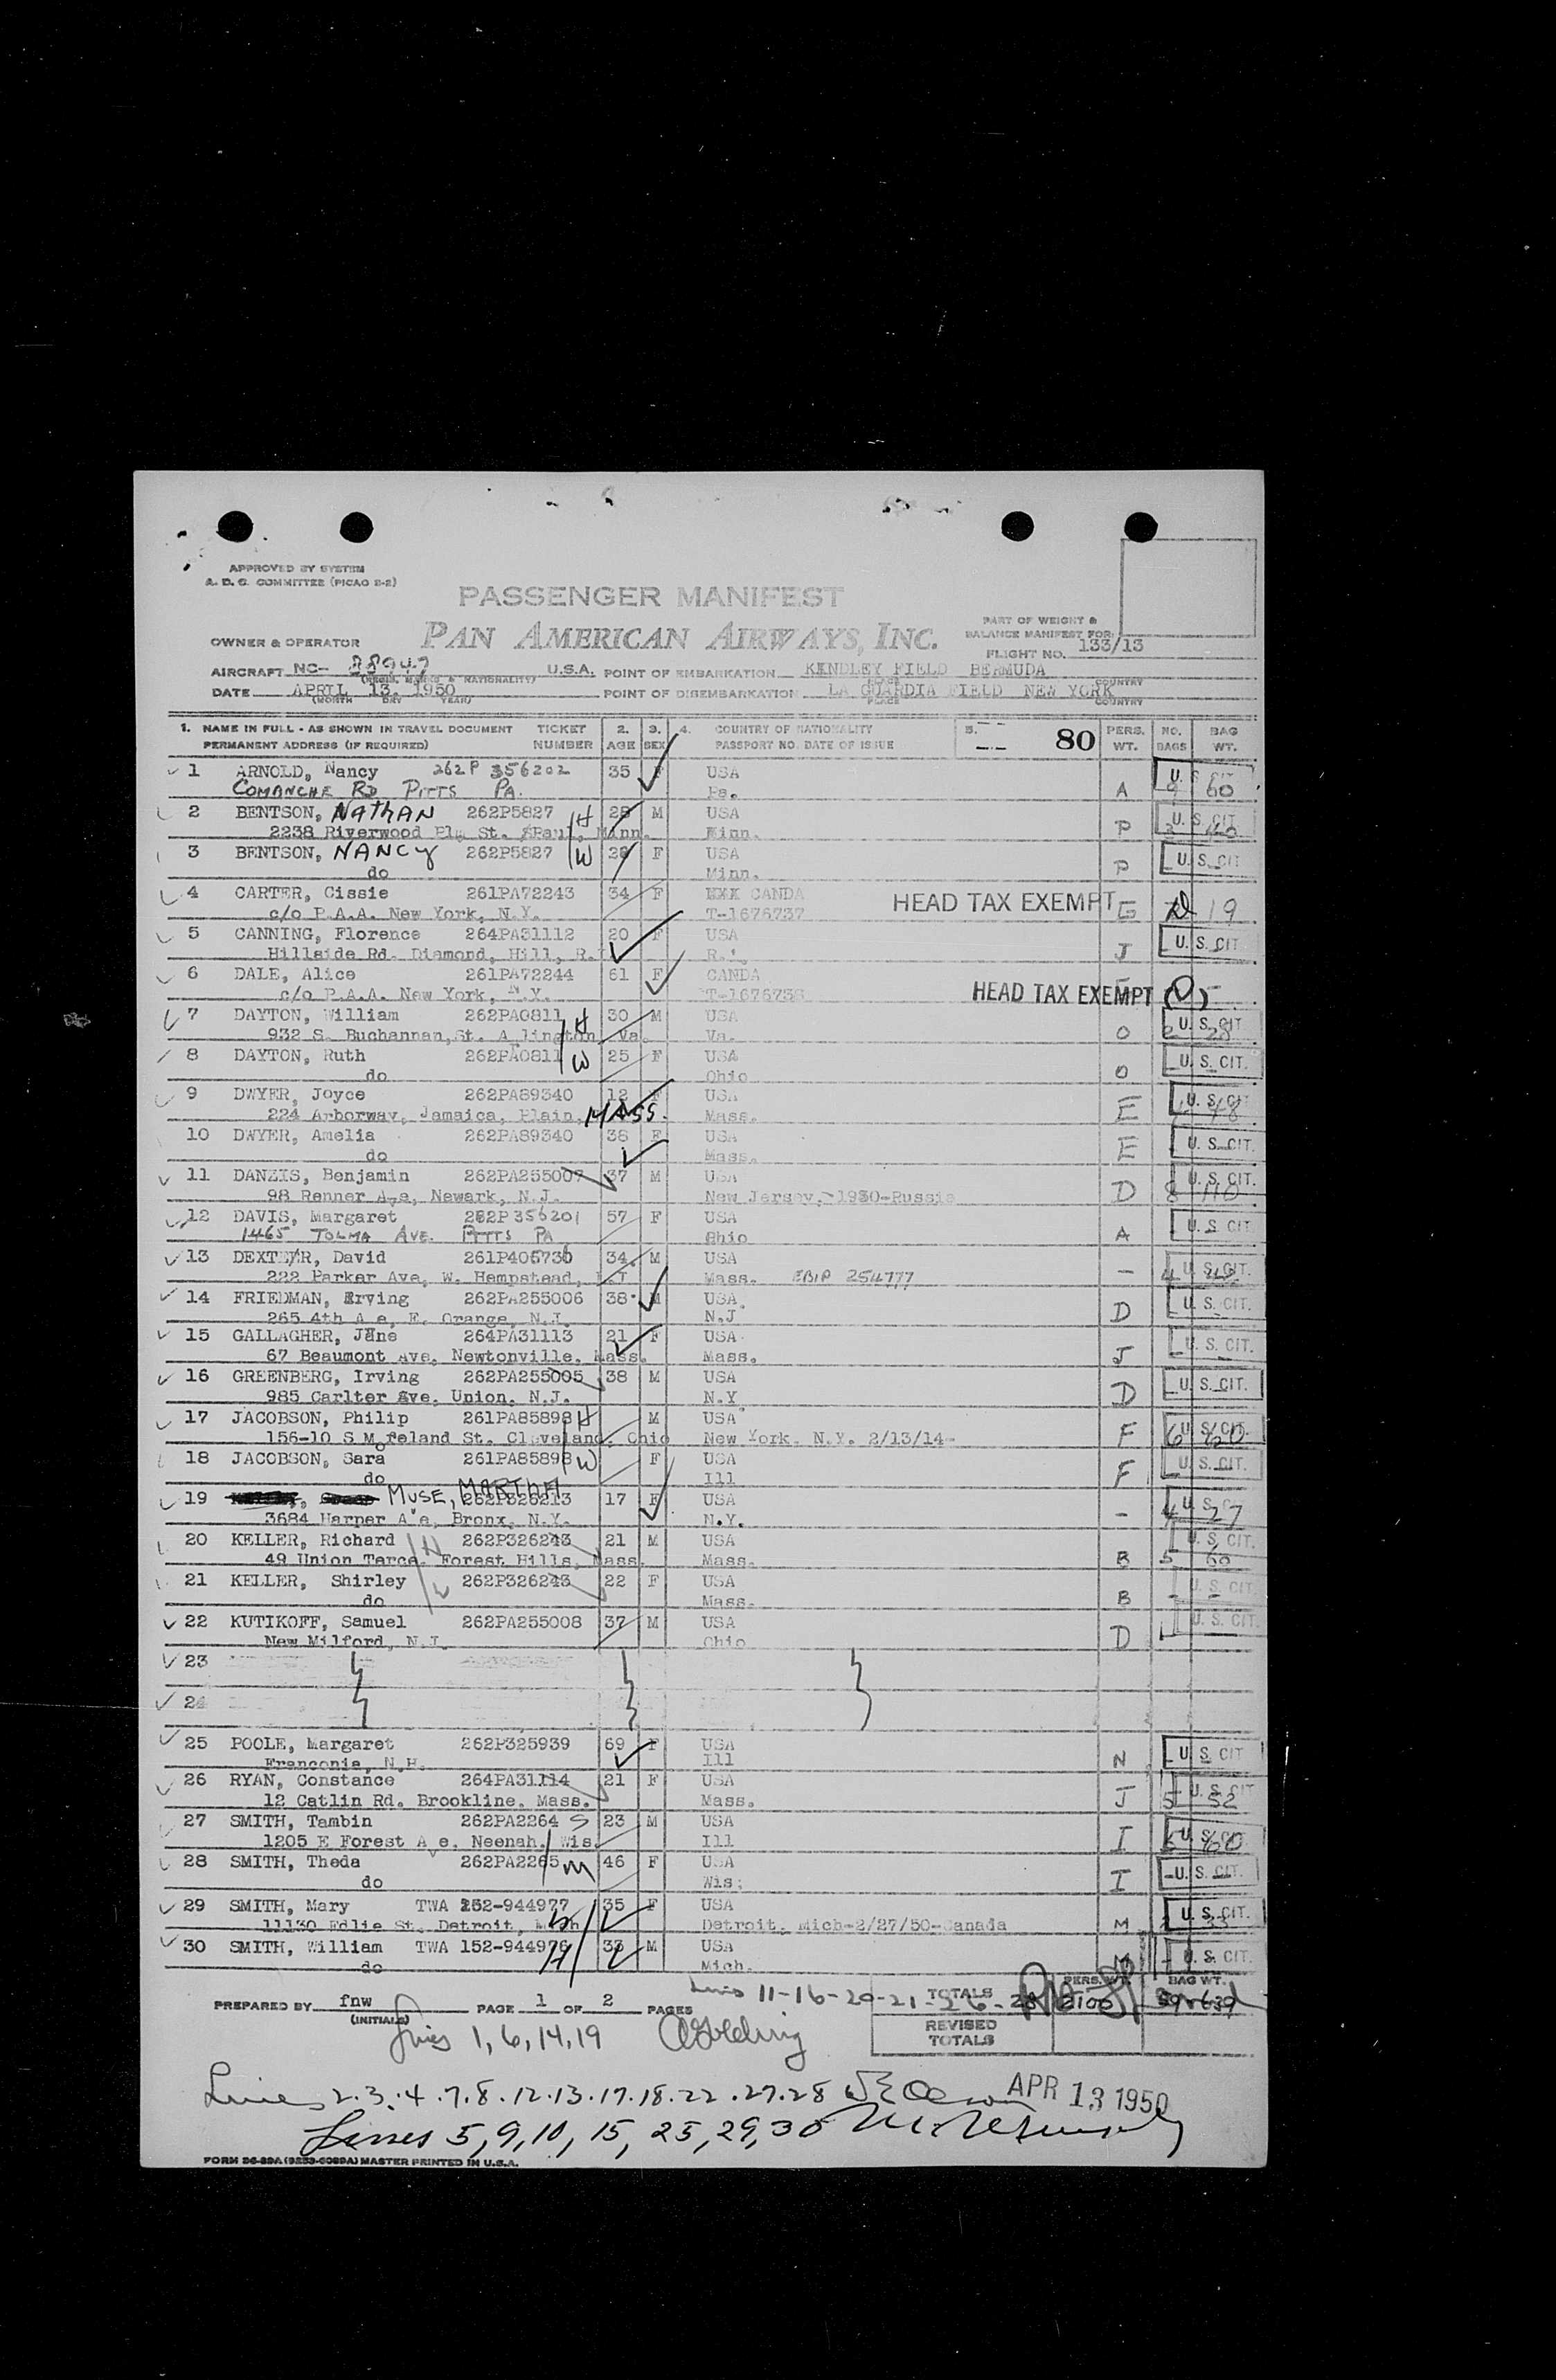 APPROVED BY SYSTEM
A. D. C. COMMITTEE (PICAO S-2)
PASSENGER MANIFEST
PAN AMERICAN AIRWAYS, INC.
PART OF WEIGHT &
BALANCE MANIFEST FOR:
OWNER & OPERATOR
FLIGHT NO. 133/13
AIRCRAFT NC- 88947 U.S.A. POINT OF EMBARKATION KINDLEY FIELD BERMUDA
DATE APRIL 13, 1950 POINT OF DISEMBARKATION LA GUARDIA FIELD NEW YORK
(MONTH DAY YEAR) PLACE COUNTRY
1. NAME IN FULL - AS SHOWN IN TRAVEL DOCUMENT TICKET 2. 3. 4. COUNTRY OF NATIONALITY 5. 80 PERS. NO. BAG
PERMANENT ADDRESS (IF REQUIRED) NUMBER AGE SEX PASSPORT NO. DATE OF ISSUE WT. BAGS WT.
1 ARNOLD, Nancy 262P 356202 35 F USA U. S. CIT
COMANCHE RD PITTS PA. Pa. A 60
2 BENTSON, NATHAN 262P5827 H 28 M USA U. S. CIT
2238 Riverwood St. Paul, Minn. Minn. P
3 BENTSON, NANCY 262P5827 W 28 F USA U. S. CIT
do Minn. P
4 CARTER, Cissie 261PA72243 34 F CANDA HEAD TAX EXEMPT
c/o P.A.A. New York, N.Y. T-1676737 G 19
5 CANNING, Florence 264PA31112 20 F USA U. S. CIT.
Hillside Rd. Diamond, Hill, R. J
6 DALE, Alice 261PA72244 61 F CANDA
c/o P.A.A. New York, N.Y. HEAD TAX EXEMPT
7 DAYTON, William 262PA0811 H 30 M USA U. S. CIT
932 S. Buchannan,St. A lington Va. Va. O 2 28
8 DAYTON, Ruth 262PA0811 W 25 F USA U. S. CIT.
do Ohio O
9 DWYER, Joyce 262PA89340 12 F USA U. S. CIT
224 Arborway, Jamaica, Plain, MASS. Mass. E 48
10 DWYER, Amelia 262PA89340 38 F USA U. S. CIT.
do Mass. E
11 DANZIS, Benjamin 262PA255007 37 M USA U. S. CIT.
98 Renner A e, Newark, N.J. New Jersey,-1930-Russia D 8 110
12 DAVIS, Margaret 262P356201 57 F USA U. S. CIT.
1465 TOLMA AVE. PITTS PA Ohio A
13 DEXTER, David 261P405736 34 M USA U. S. CIT.
222 Parker Ave, W. Hempstead, Mass. EBIP 254777 - 4
14 FRIEDMAN, Erving 262PA255006 38 M USA U. S. CIT.
265 4th A e, E. Orange, N.J. N.J D
15 GALLAGHER, Jane 264PA31113 21 F USA U. S. CIT.
67 Beaumont Ave. Newtonville, Mass. Mass. J
16 GREENBERG, Irving 262PA255005 38 M USA U. S. CIT.
985 Carlter Ave. Union, N.J. N.Y D
17 JACOBSON, Philip 261PA85898 H M USA U. S. CIT.
156-10 S Moreland St. Cleveland, Ohio New York. N.Y. 2/13/14- F 6 60
18 JACOBSON, Sara 261PA85898 W F USA U. S. CIT.
do Ill F
19 MUSE, MARTHA 262P326213 17 F USA U. S.
3684 Harper A e, Bronx, N.Y. N.Y. - 4 27
20 KELLER, Richard H 262P326243 21 M USA U. S. CIT.
49 Union Terce. Forest Hills, Mass. Mass. B 5 60
21 KELLER, Shirley W 262P326243 22 F USA U. S. CIT.
do Mass. B - -
22 KUTIKOFF, Samuel 262PA255008 37 M USA U. S. CIT.
New Milford, N.J. Ohio D
23
24
25 POOLE, Margaret 262P325939 69 F USA U. S. CIT
Franconia, N.H. Ill N
26 RYAN, Constance 264PA31114 21 F USA U. S. CIT
12 Catlin Rd. Brookline, Mass. Mass. J 5 52
27 SMITH, Tambin 262PA2264 S 23 M USA U. S. CIT
1205 E Forest A e. Neenah. Wis. Ill I 60
28 SMITH, Theda 262PA2265 M 46 F USA U. S. CIT.
do Wis. I
29 SMITH, Mary TWA 152-944977 W 35 F USA U. S. CIT.
11130 Edlie St. Detroit, Mich Detroit, Mich-2/27/50-Canada M
30 SMITH, William TWA 152-944976 H 33 M USA U. S. CIT.
do Mich. M
Lines 11-16-20-21-26- TOTALS PERS. WT. 2100 BAG WT. 639
PREPARED BY fnw PAGE 1 OF 2 PAGES
(INITIALS)
REVISED
TOTALS
Lines 1, 6, 14, 19
Lines 2.3.4.7.8.12.13.17.18.22.27.28
APR 13 1950
Lines 5, 9, 10, 15, 25, 29, 30
MASTER PRINTED IN U.S.A.